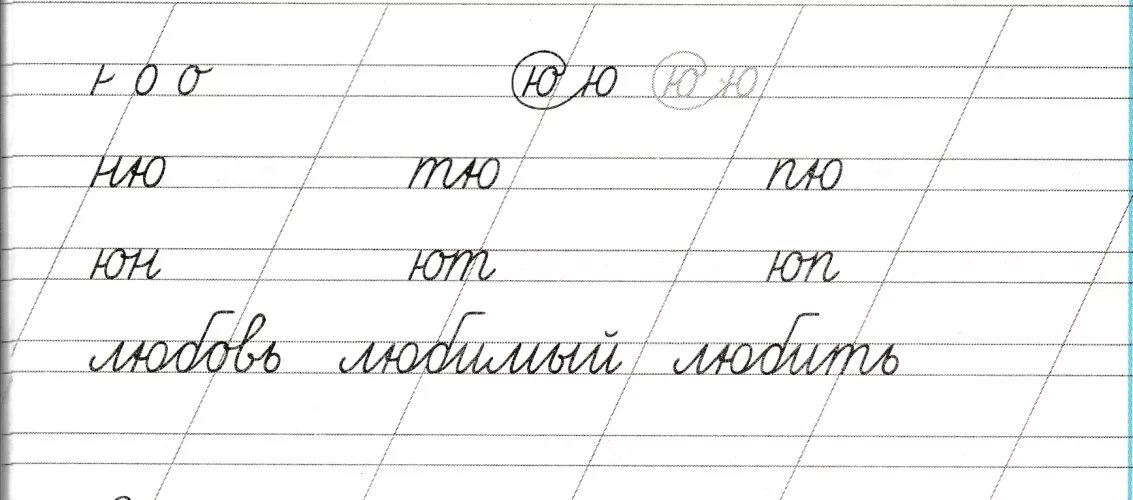 ю ю ю ю
ню тю пю
юн ют юп
любовь любимый любить